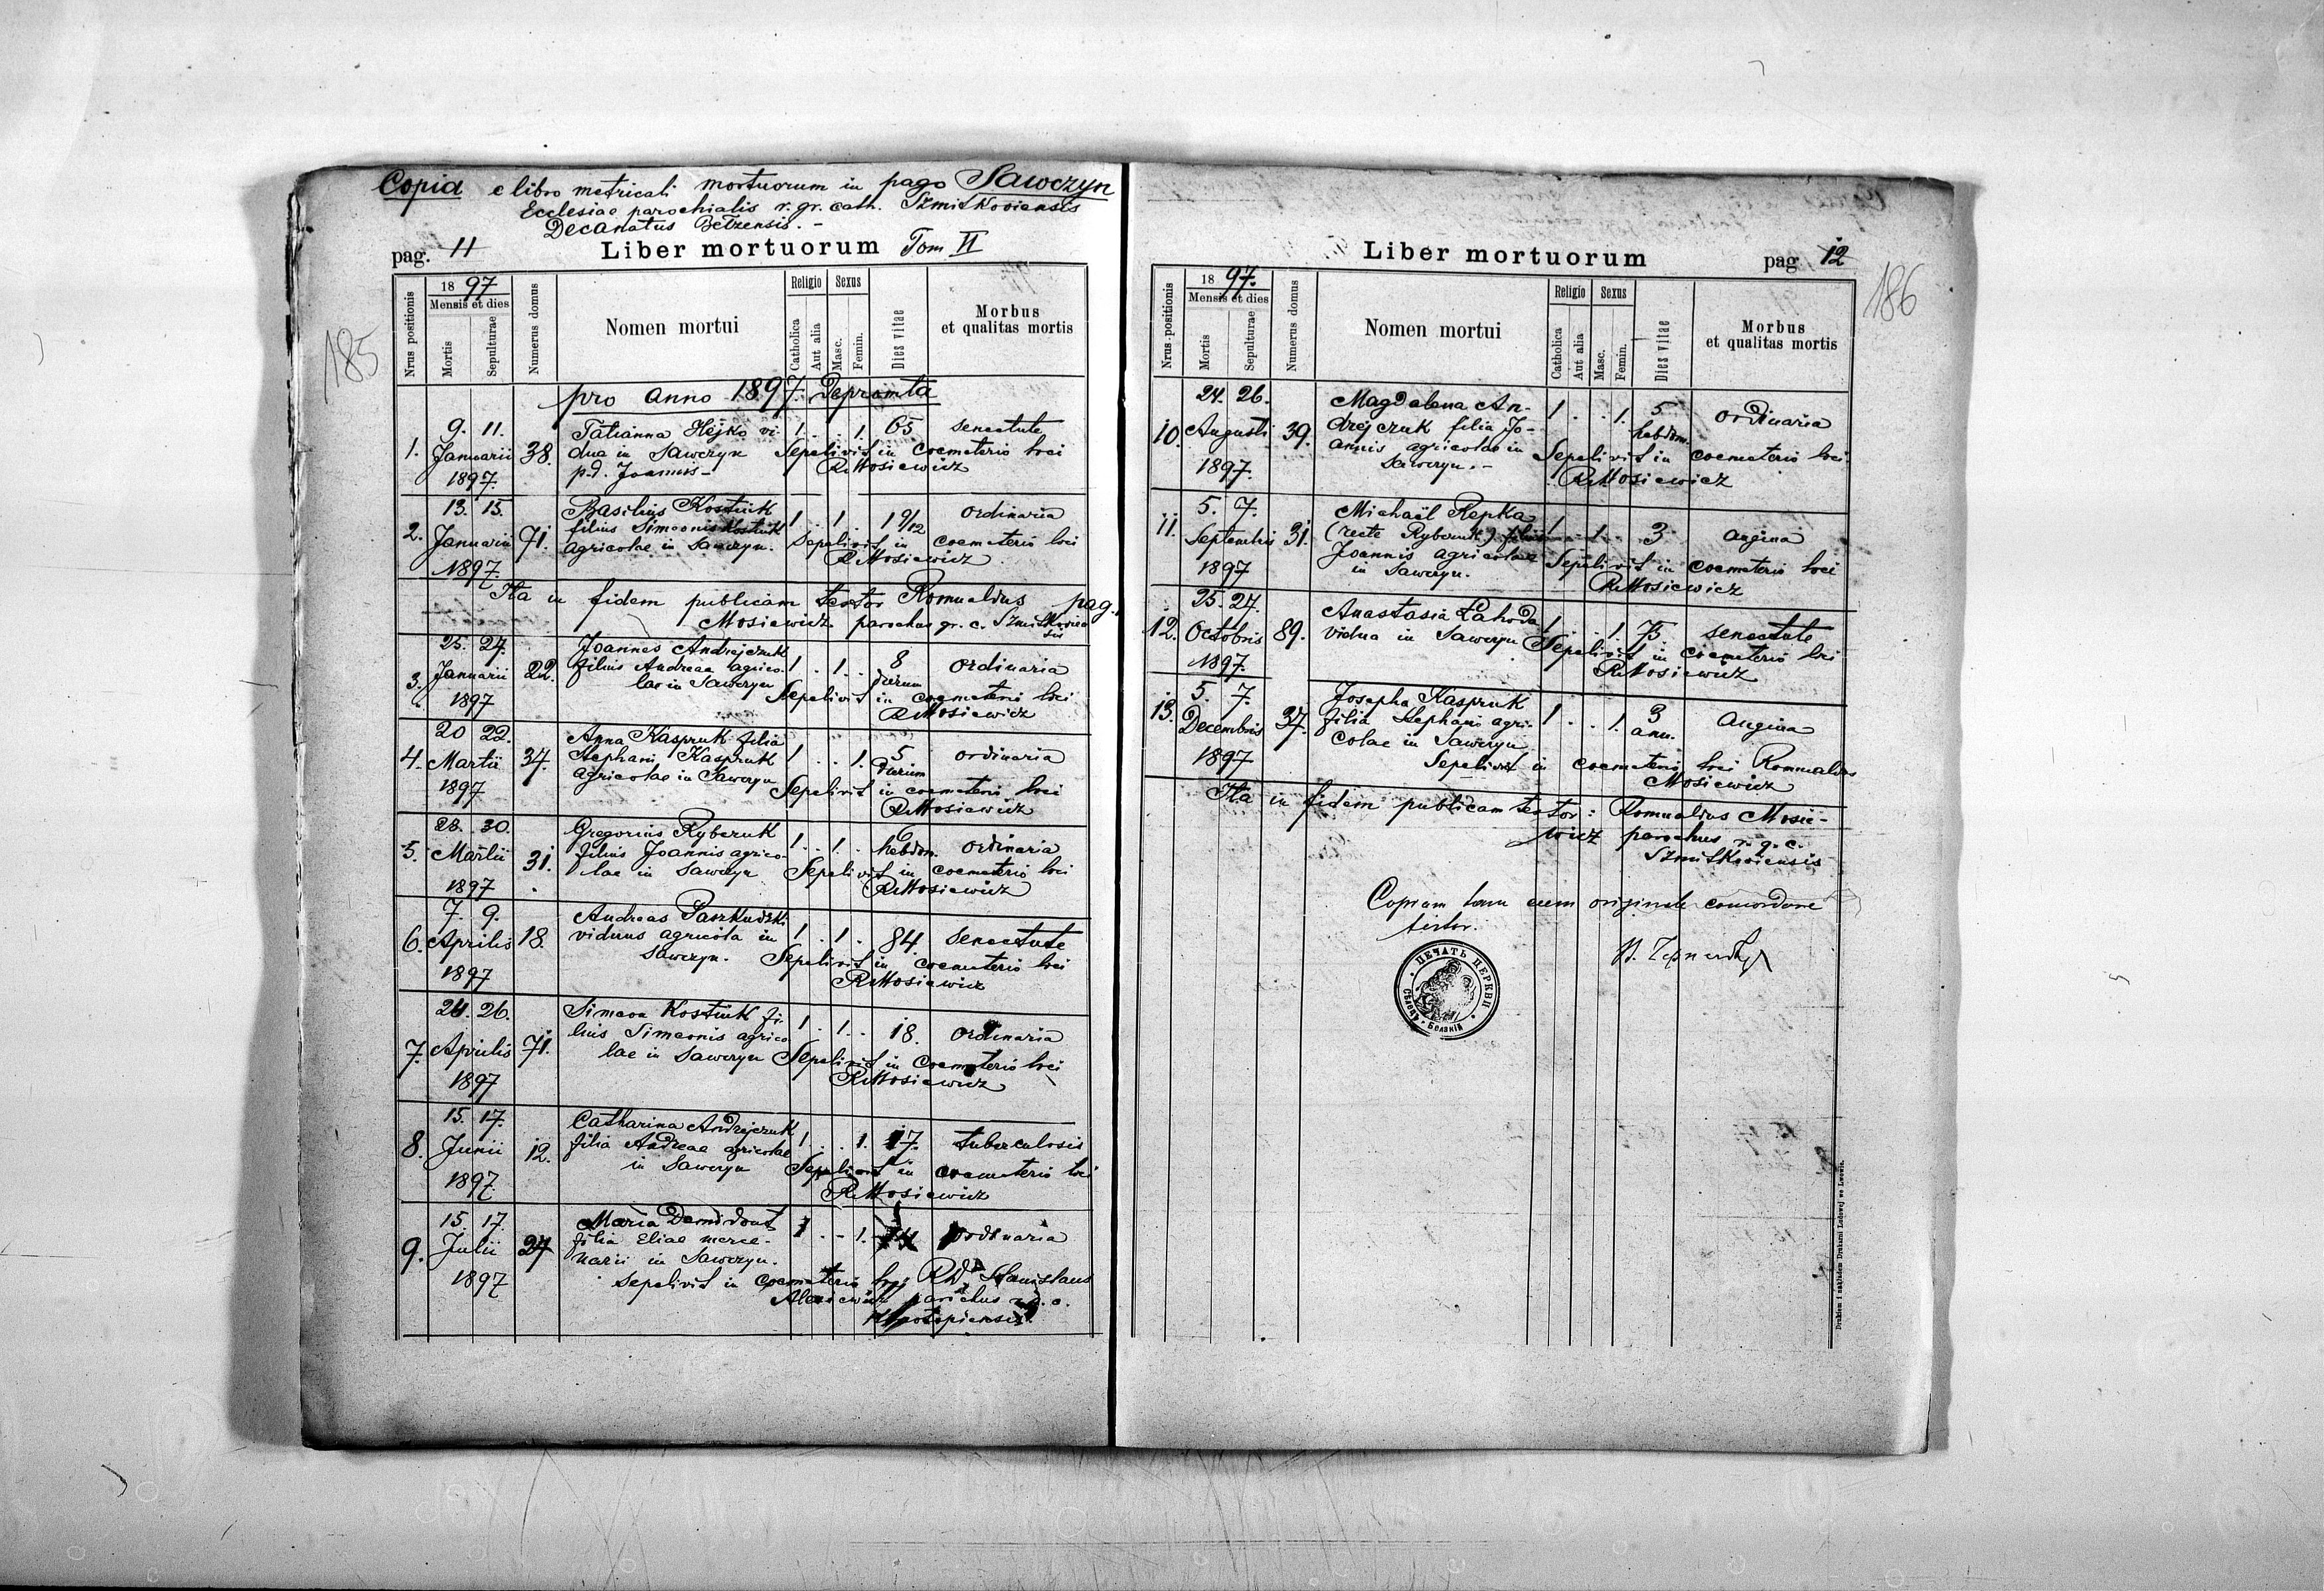 Copia e libro metricali mortuorum in pago Sawczyn
Ecclesiae parochialis r. gr. cath. Szmitkoviensis
Decanatus Bełzensis. -
pag. 11 Liber mortuorum Tom VI
185
Nrus positionis
18 97
Mensis et dies
Mortis
Sepulturae
Numerus domus
Nomen mortui
Religio
Catholica
Aut alia
Sexus
Masc.
Femin.
Dies vitae
Morbus
et qualitas mortis
pro anno 1897. Depromta
9. 11. Tatianna Hejko vi- 1. . . 1. 65 senectute
1. Januarii 38. dua in Sawczyn Sepelivit in coemeterio loci
1897. p.d. Joannis - RMosiewicz
13. 15. Basilius Kostiuk 1 . 1 . 1 9/12 ordinaria
2. Januarii 71. filius Simeonis Kostiuk
agricolae in Sawczyn. Sepelivit in coemeterio loci
1897. RMosiewicz
Ita in fidem publicam testor Romualdus pag.
Mosiewicz parochus gr. c. Szmitkovien
sis
25. 27. Joannes Andrejczuk
3. Januarii 22. filius Andreae agrico- 1 . 1 . . 8 dierum ordinaria
1897 lae in Sawczyn Sepelivit in coemeterio loci
RMosiewicz
20 22. Anna Kaspruk filia
4. Martii 37. Stephani Kaspruk 1 . . 1. 5 dierum ordinaria
1897 agricolae in Sawczyn Sepelivit in coemeterio loci
RMosiewicz
28. 30. Gregorius Ryberuk
5. Martii 31. filius Joannis agrico- 1 . . 1 . 6 hebdom. ordinaria
1897 lae in Sawczyn Sepelivit in coemeterio loci
RMosiewicz
7. 9. Andreas
6. Aprilis 18. viduus agricola in 1 . 1 . 84 senectute
1897 Sawczyn. Sepelivit in coemeterio loci
RMosiewicz
24. 26. Simeon Kostiuk fi- 1 . 1 . . 18. ordinaria
7. Aprilis 71. lius Simeonis agrico
1897 lae in Sawczyn Sepelivit in coemeterio loci
RMosiewicz
15. 17. Catharina Andrejczuk
8. Junii 12. filia Andreae agricolae 1 . . 1. 17. tuberculosis
1897. in Sawczyn Sepelivit in coemeterio loci
RMosiewicz
15. 17. Maria
9. Julii 27 filia Eliae merce- 1 . - 1. ordinaria
1897 narii in Sawczyn.
Sepelivit in coemeterio loci Stanislaus
parochus
Liber mortuorum pag 12
186
Nrus positionis
18 97.
Mensis et dies
Mortis
Sepulturae
Numerus domus
Nomen mortui
Religio
Catholica
Aut alia
Sexus
Masc.
Femin.
Dies vitae
Morbus
et qualitas mortis
24. 26. Magdalena An- 1 . . 1. 5 hebdom. ordinaria
10. Augusti 39. drejczuk filia Jo-
annis agricolae in Sepelivit in coemeterio loci
1897. Sawczyn. - RMosiewicz
5. 7. Michaël Repka
11. Septembris 31. (recte Ryberuk) filius 1 . 1 . . 3 angina
1897 Joannis agricolae Sepelivit in coemeterio loci
in Sawczyn. RMosiewicz
25. 27. Anastasia Łahoda
12. Octobris 89. vidua in Sawczyn 1 . . 1. 75. senectute
1897. Sepelivit in coemeterio loci
RMosiewicz
5. 7. Josepha Kaspruk
13. Decembris 37. filia Stephani agri- 1 . . 1. 3 ann. angina
1897 colae in Sawczyn
Sepelivit in coemeterio loci Romualdus
Mosiewicz
Ita in fidem publicam testor: Romualdus Mosie-
wicz parochus r. g. c.
Szmitkoviensis
Copiam hanc cum originale concordare
testor.
ПЕЧАТЬ ЦЕРКВИ
Белзкій
Drukiem i nakładem Drukarni Ludowej we Lwowie.